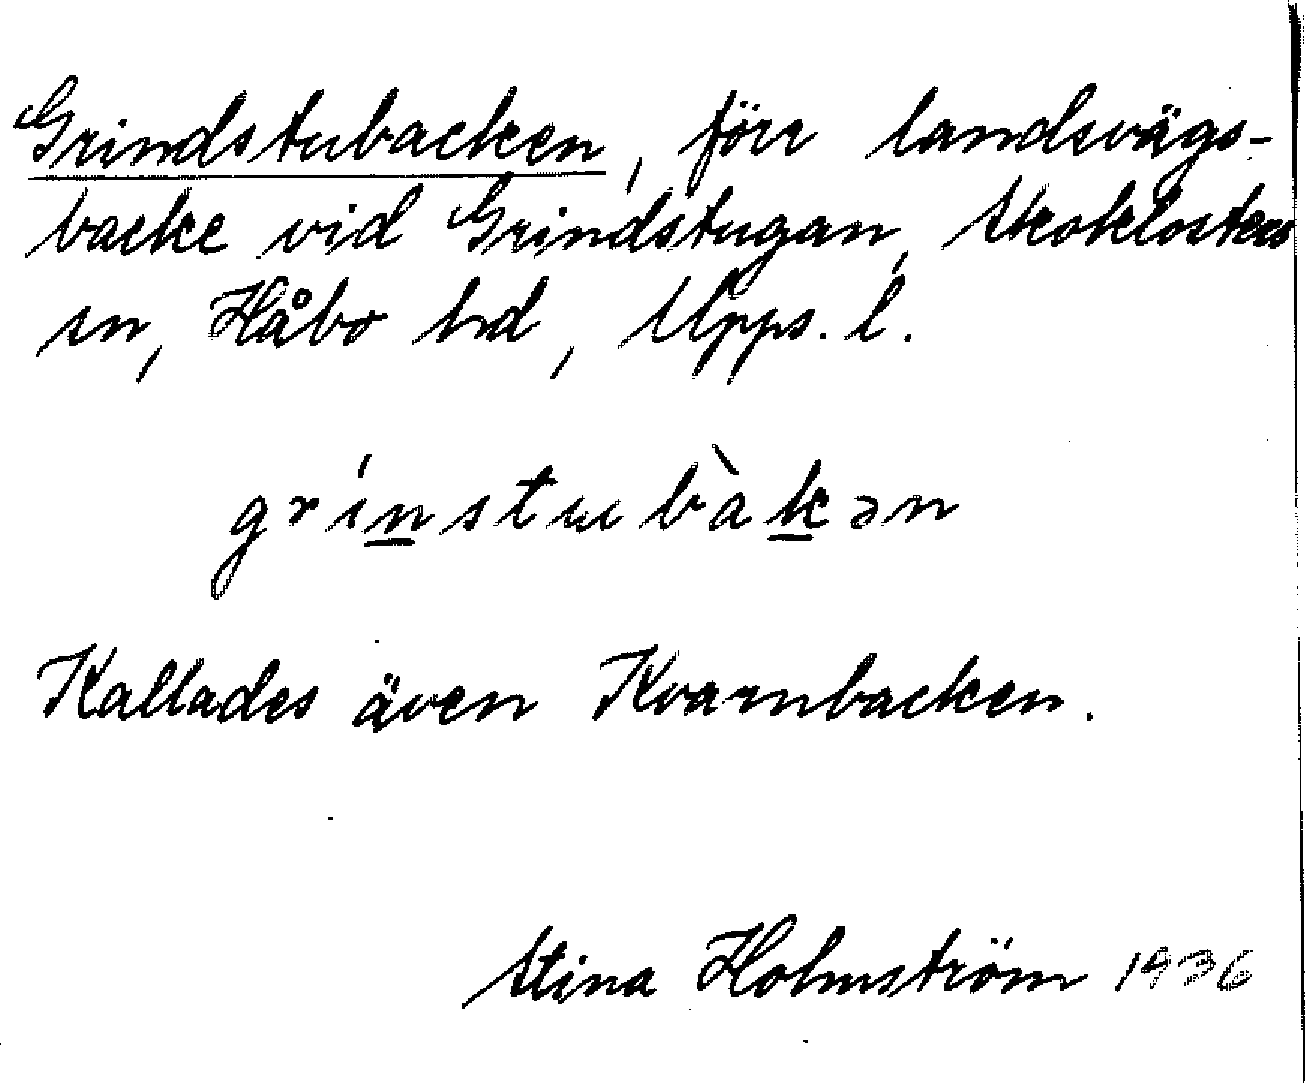 Grindstubacken, förr landsvägs-
backe vid Grindstugan, Skoklosters
sn, Håbo hd, Upps. l.
grínstubàkən
Kallades även Kvarnbacken.
Stina Holmström 1936